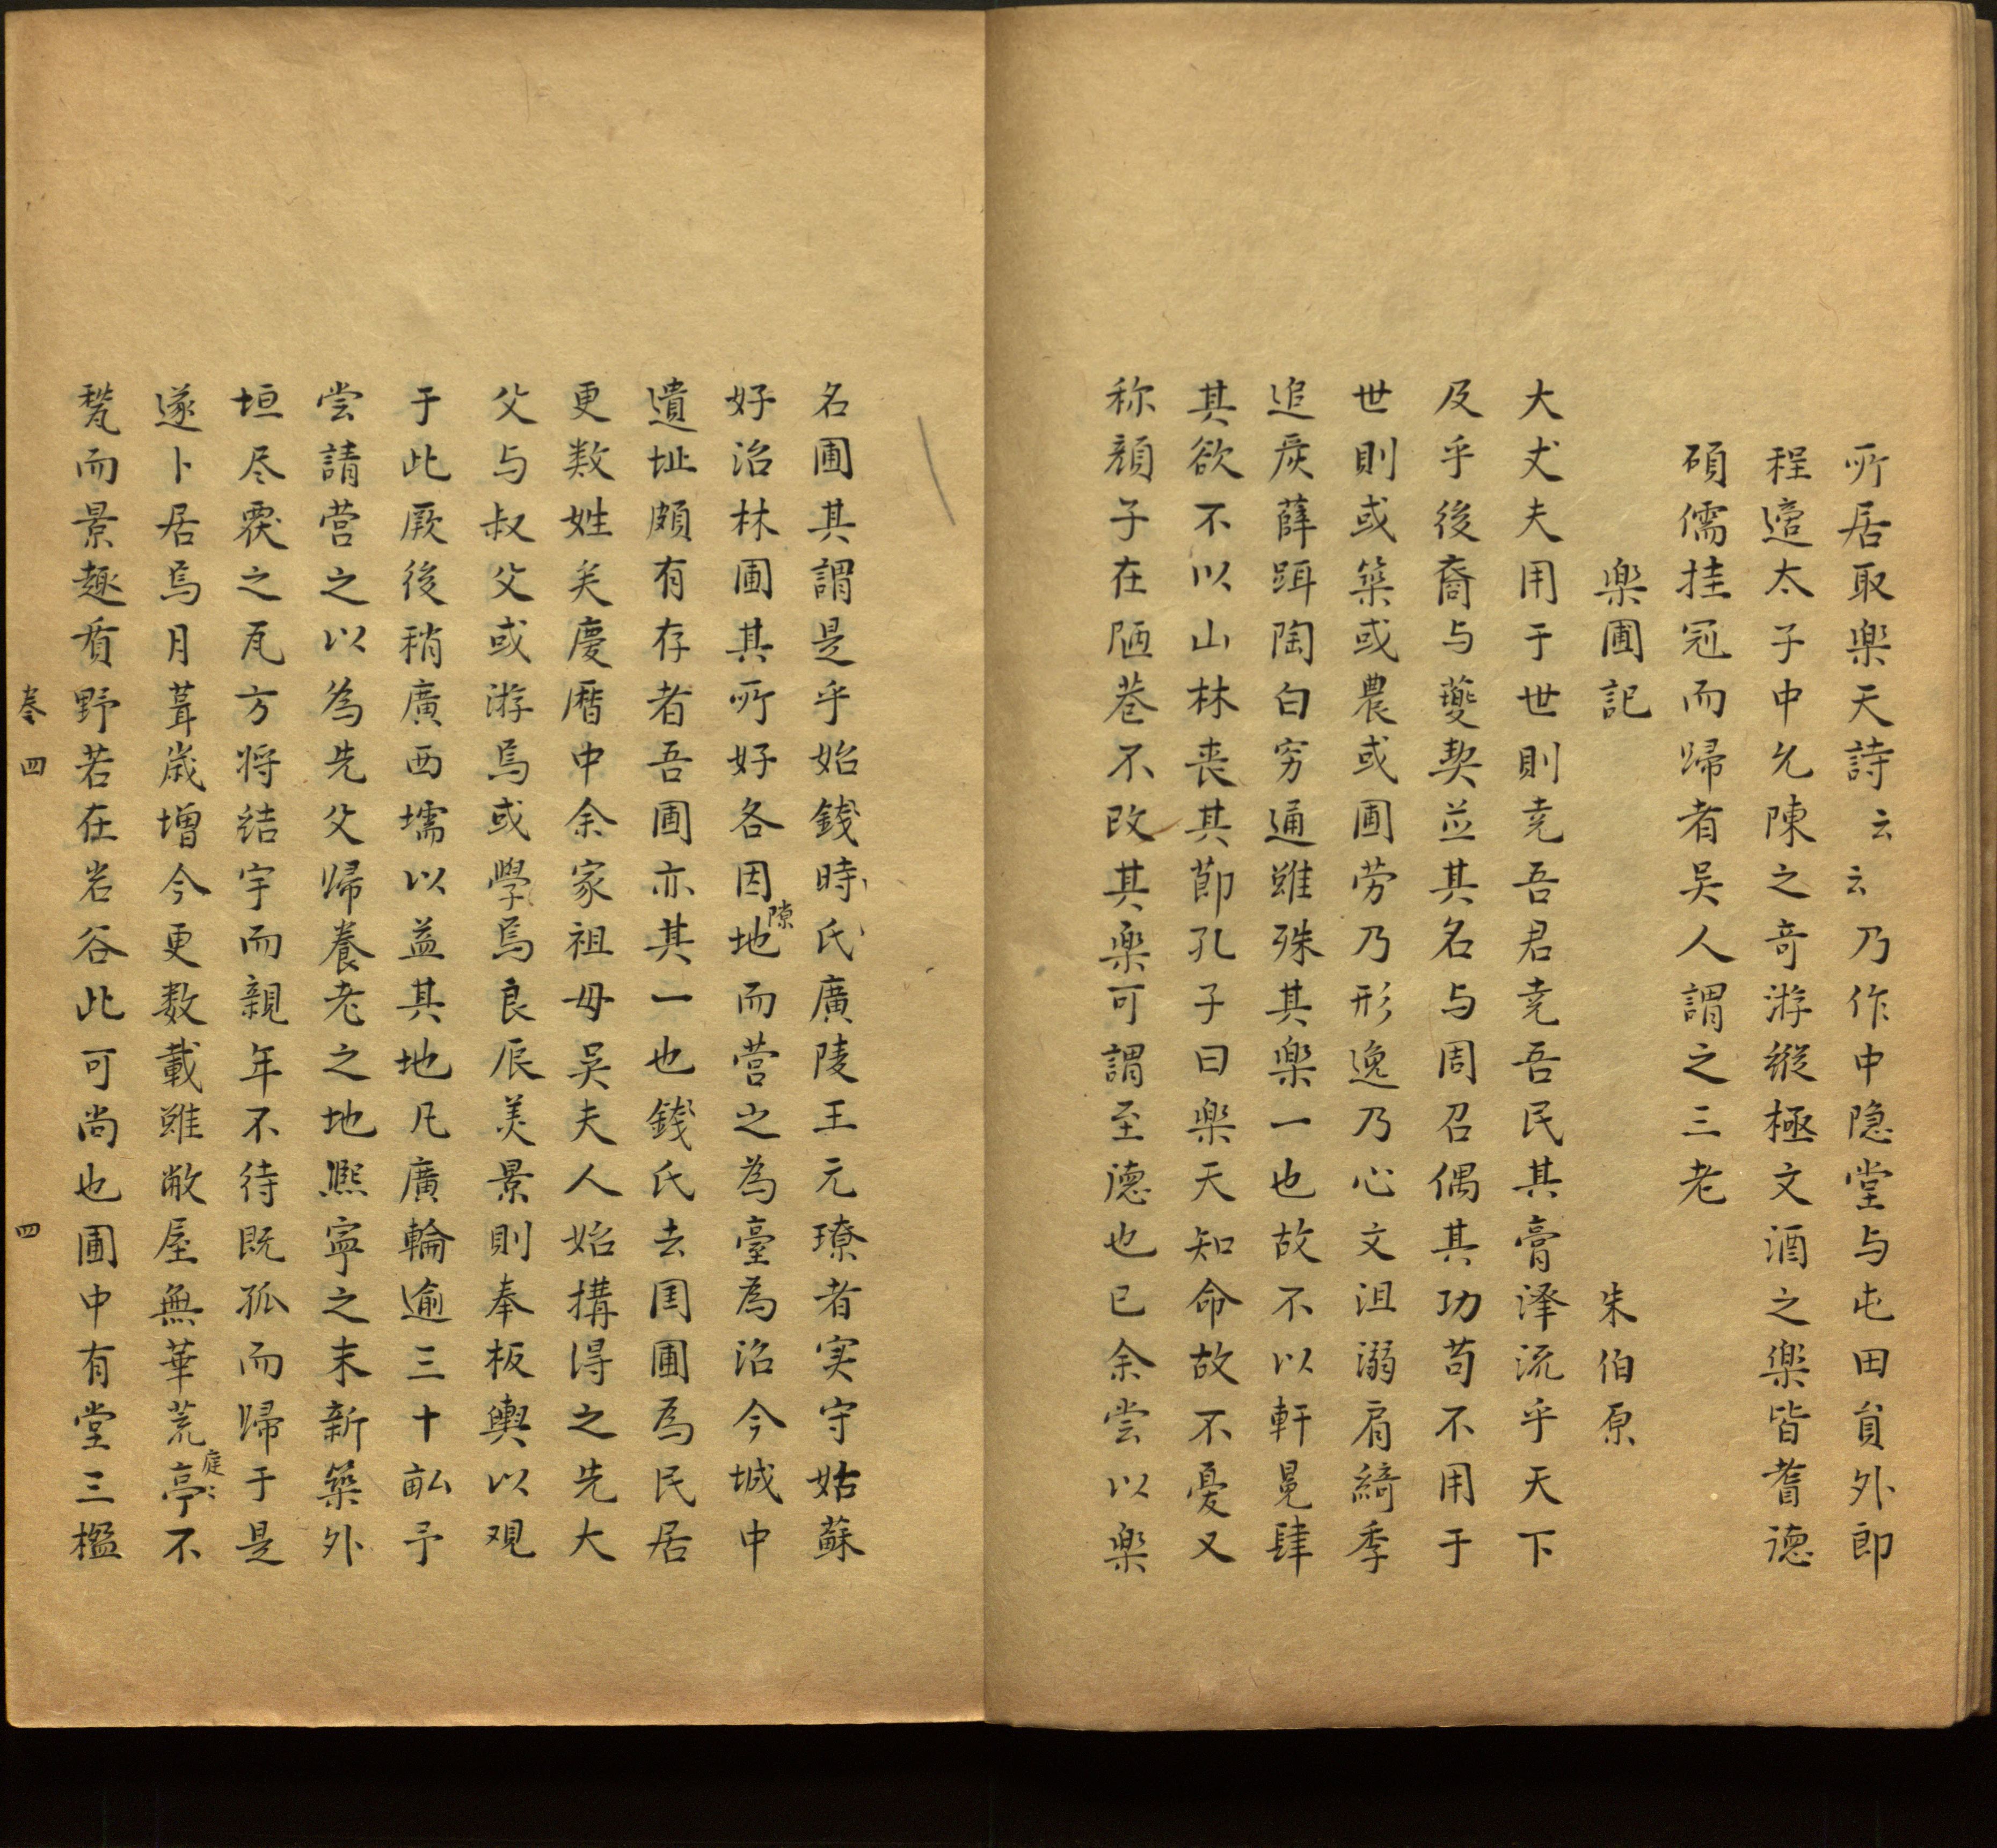 所居取楽天詩云云乃作中隐堂与屯田員外郎
程適太子中允陳之奇游縦極文酒之楽皆耆德
碩儒挂冠而歸者吴人謂之三老
楽圃記　朱伯原
大丈夫用于世則尭吾君尭吾民其膏泽流乎天下
及乎後裔与夔契並其名与周召偶其功苟不用于
世則或築或農或圃劳乃形逸乃心文沮溺肩綺季
追叐薜踽陶白穷通雖殊其楽一也故不以軒冕肆
其欲不以山林丧其節孔子曰楽天知命故不憂又
称顔子在陋巷不改其楽可謂至德也已余尝以楽
名圃其謂是乎始錢時氏廣陵王元璙者实守姑蘇
好治林圃其所好各因隙地而营之為臺為沼今城中
遺址頗有存者吾圃亦其一也錢氏去国圃為民居
更数姓矣慶暦中余家祖母吴夫人始搆得之先大
父与叔父或游焉或學焉良辰美景則奉板輿以观
于此厥後稍廣西壖以益其地凡廣輪逾三十畆予
尝請营之以為先父歸養老之地熈寧之末新築外
垣尽覆之瓦方将结宇而親年不待既孤而歸于是
遂卜居焉月葺歲増今更数載雖敝屋無華荒庭亭不
甃而景趣質野若在岩谷此可尚也圃中有堂三楹
卷四　四